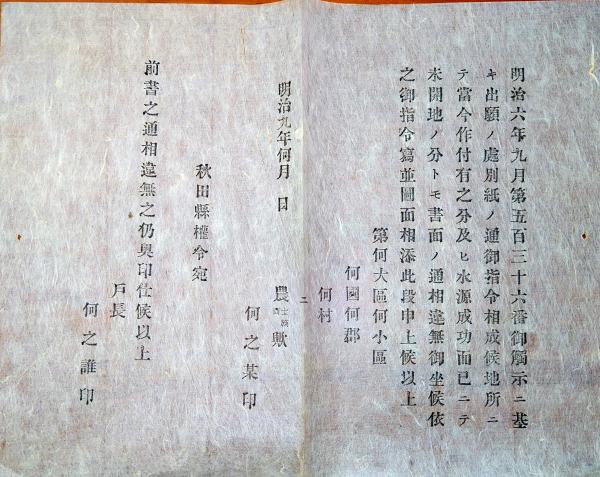 明治六年九月第五百三十六番御觸示ニ基
キ出願ノ處別紙ノ通御指令相成候地所ニ
テ當今作付有之分及ヒ水源成功而已ニテ
未開地ノ分トモ書面ノ通相違無御坐候依
之御指令寫並圖面相添此段申上候以上
第何大區何小區
何國何郡
何村
ニ
農士族歟
商
何之某印
明治九年何月 日
秋田縣權令宛
前書之通相違無之仍奥印仕候以上
戸長
何之誰印